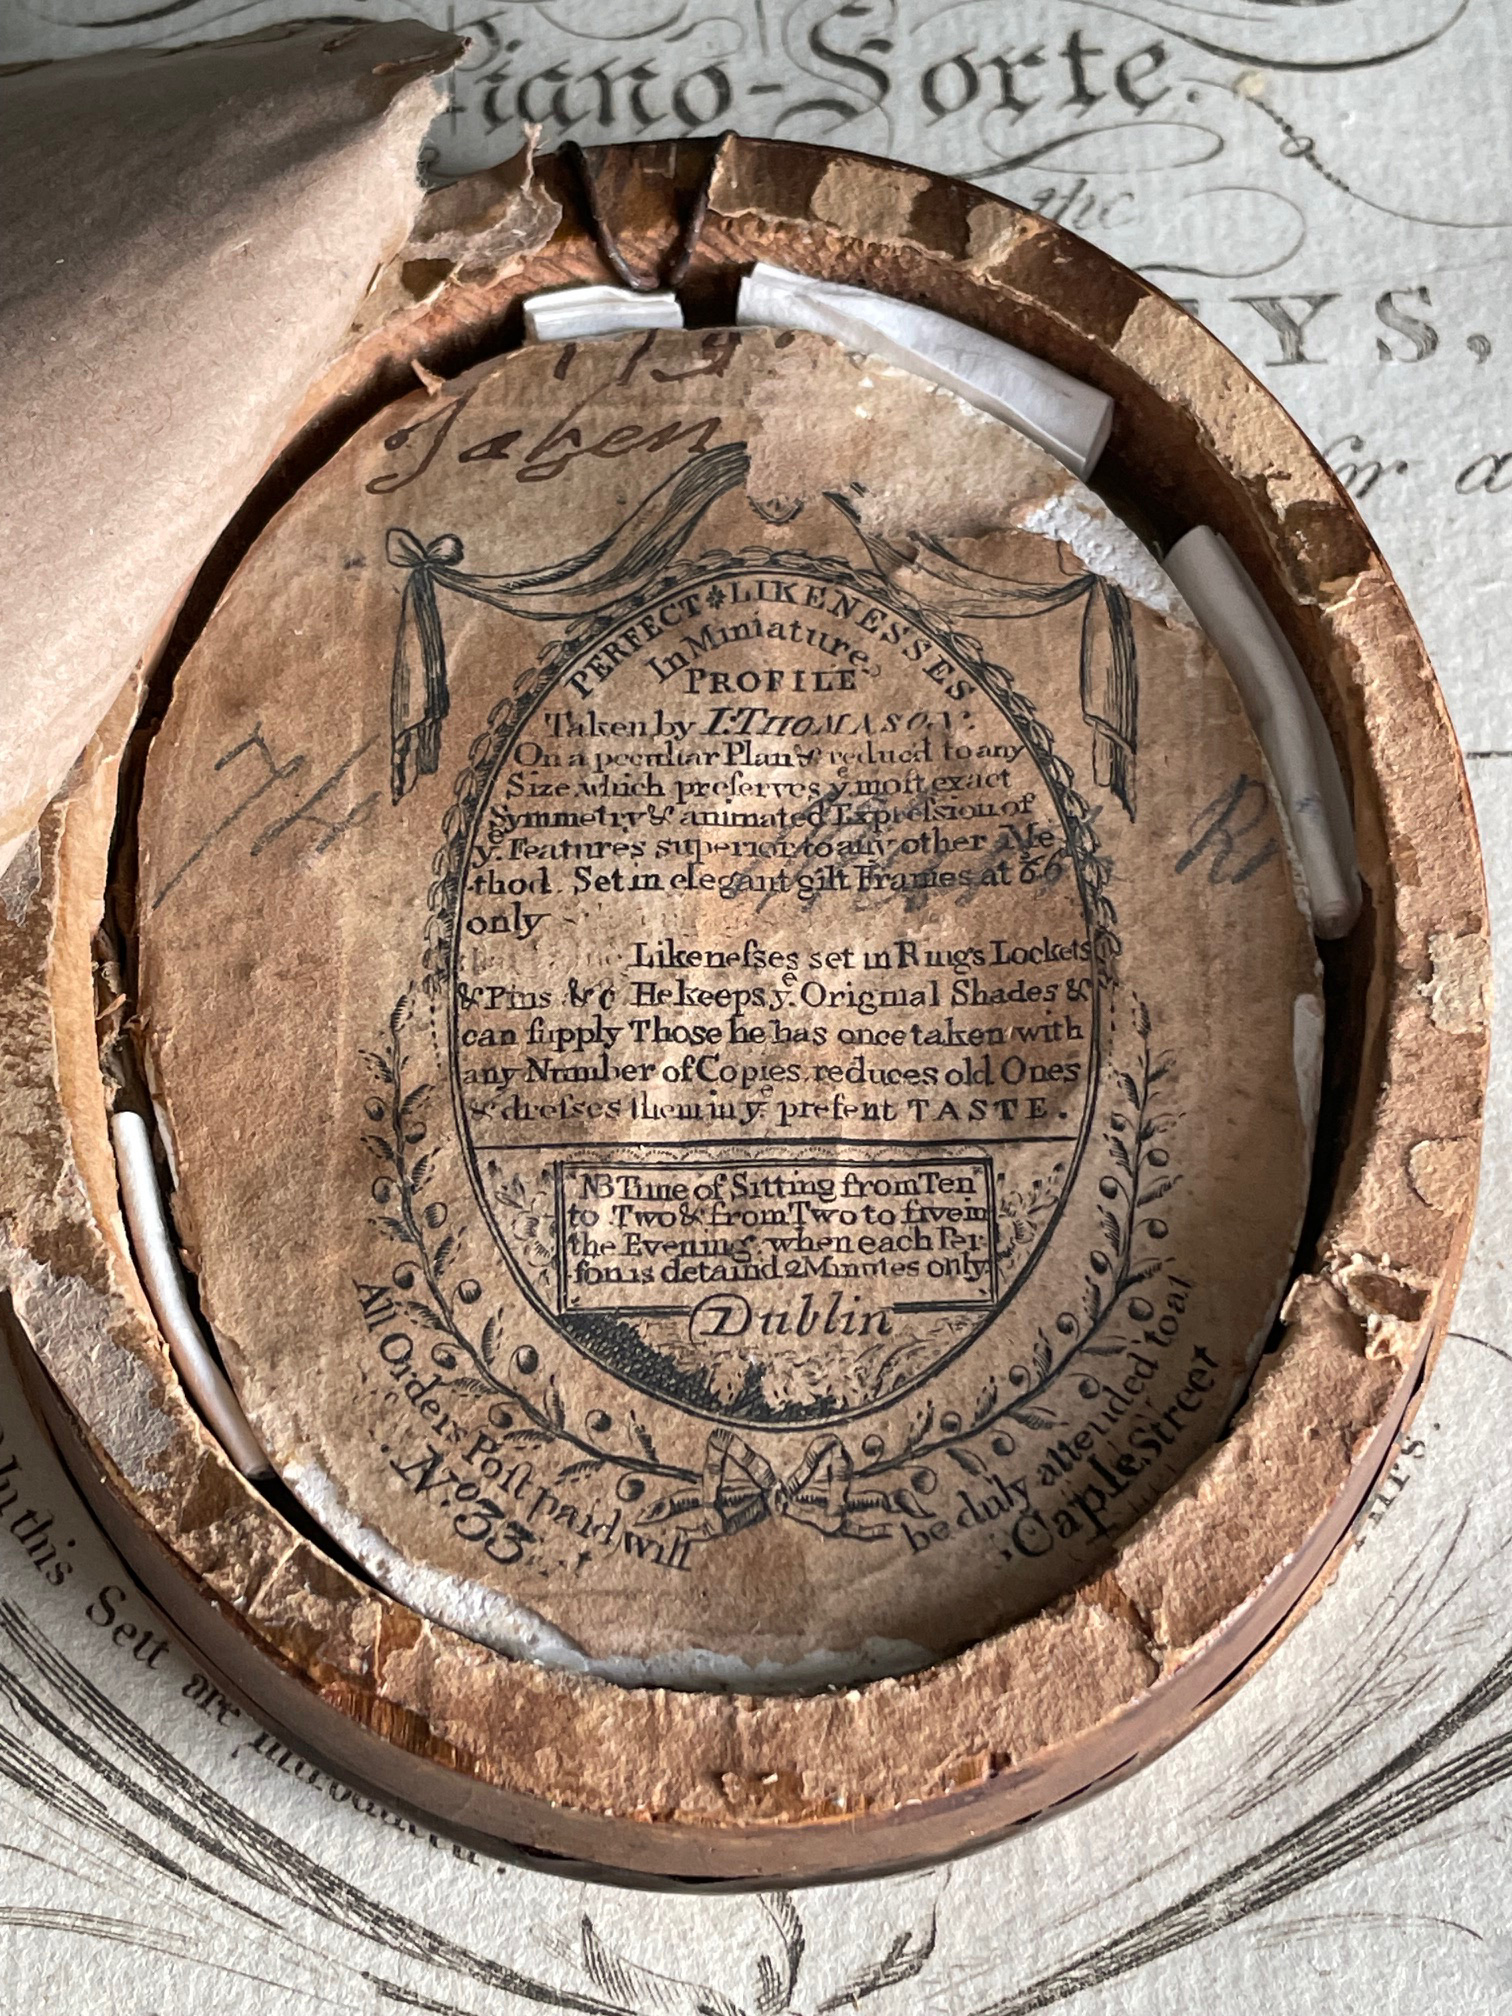 Piano-Forte.
the
YS,
for a
179
Taken
PERFECT LIKENESSES
In Miniature
PROFILE
Taken by I: THOMASON.
On a peculiar Plan & reducd to any
Size, which preserves yͤ. moſt exact
Symmetry & animated Expreſsion of
yͤ. Features superior to any other Me
thod. Set in elegant gilt Frames at 6/6
only
Likeneſses set in Rings Lockets
& Pins &c He keeps yͤ. Original Shades &
can ſupply Those he has once taken with
any Number of Copies, reduces old Ones
& dreſses them in yͤ. preſent TASTE.
NB Time of Sitting from Ten
to Two & from Two to five in
the Evening, when each Per-
ſon is detaind 2 Minutes only
Dublin
All Orders Poſt paid will
be duly attended to at
No. 33
Caple Street
In this Sett are introduced